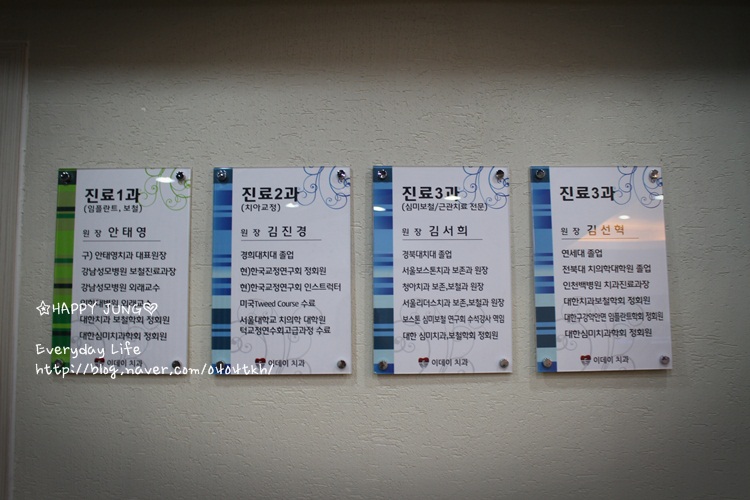 진료1과
(임플란트, 보철)
원 장 안 태 영
구) 안태영치과 대표원장
강남성모병원 보철진료과장
강남성모병원 외래교수
외래교수
대한치과 보철학회 정회원
대한심미치과학회 정회원
이데이 치과
진료2과
(치아교정)
원 장 김 진 경
경희대치대 졸업
현)한국교정연구회 정회원
현)한국교정연구회 인스트럭터
미국Tweed Course 수료
서울대학교 치의학 대학원
턱교정연수회고급과정 수료
이데이 치과
진료3과
(심미보철/근관치료 전문)
원 장 김 서 희
경북대치대 졸업
서울보스톤치과 보존과 원장
청아치과 보존,보철과 원장
서울리더스치과 보존,보철과 원장
보스톤 심미보철 연구회 수석강사 역임
대한 심미치과,보철학회 정회원
이데이 치과
진료3과
원 장 김 선 혁
연세대 졸업
전북대 치의학대학원 졸업
인천백병원 치과진료과장
대한치과보철학회 정회원
대한구강악안면 임플란트학회 정회원
대한심미치과학회 정회원
이데이 치과
☆HAPPY JUNG♡
Everyday Life